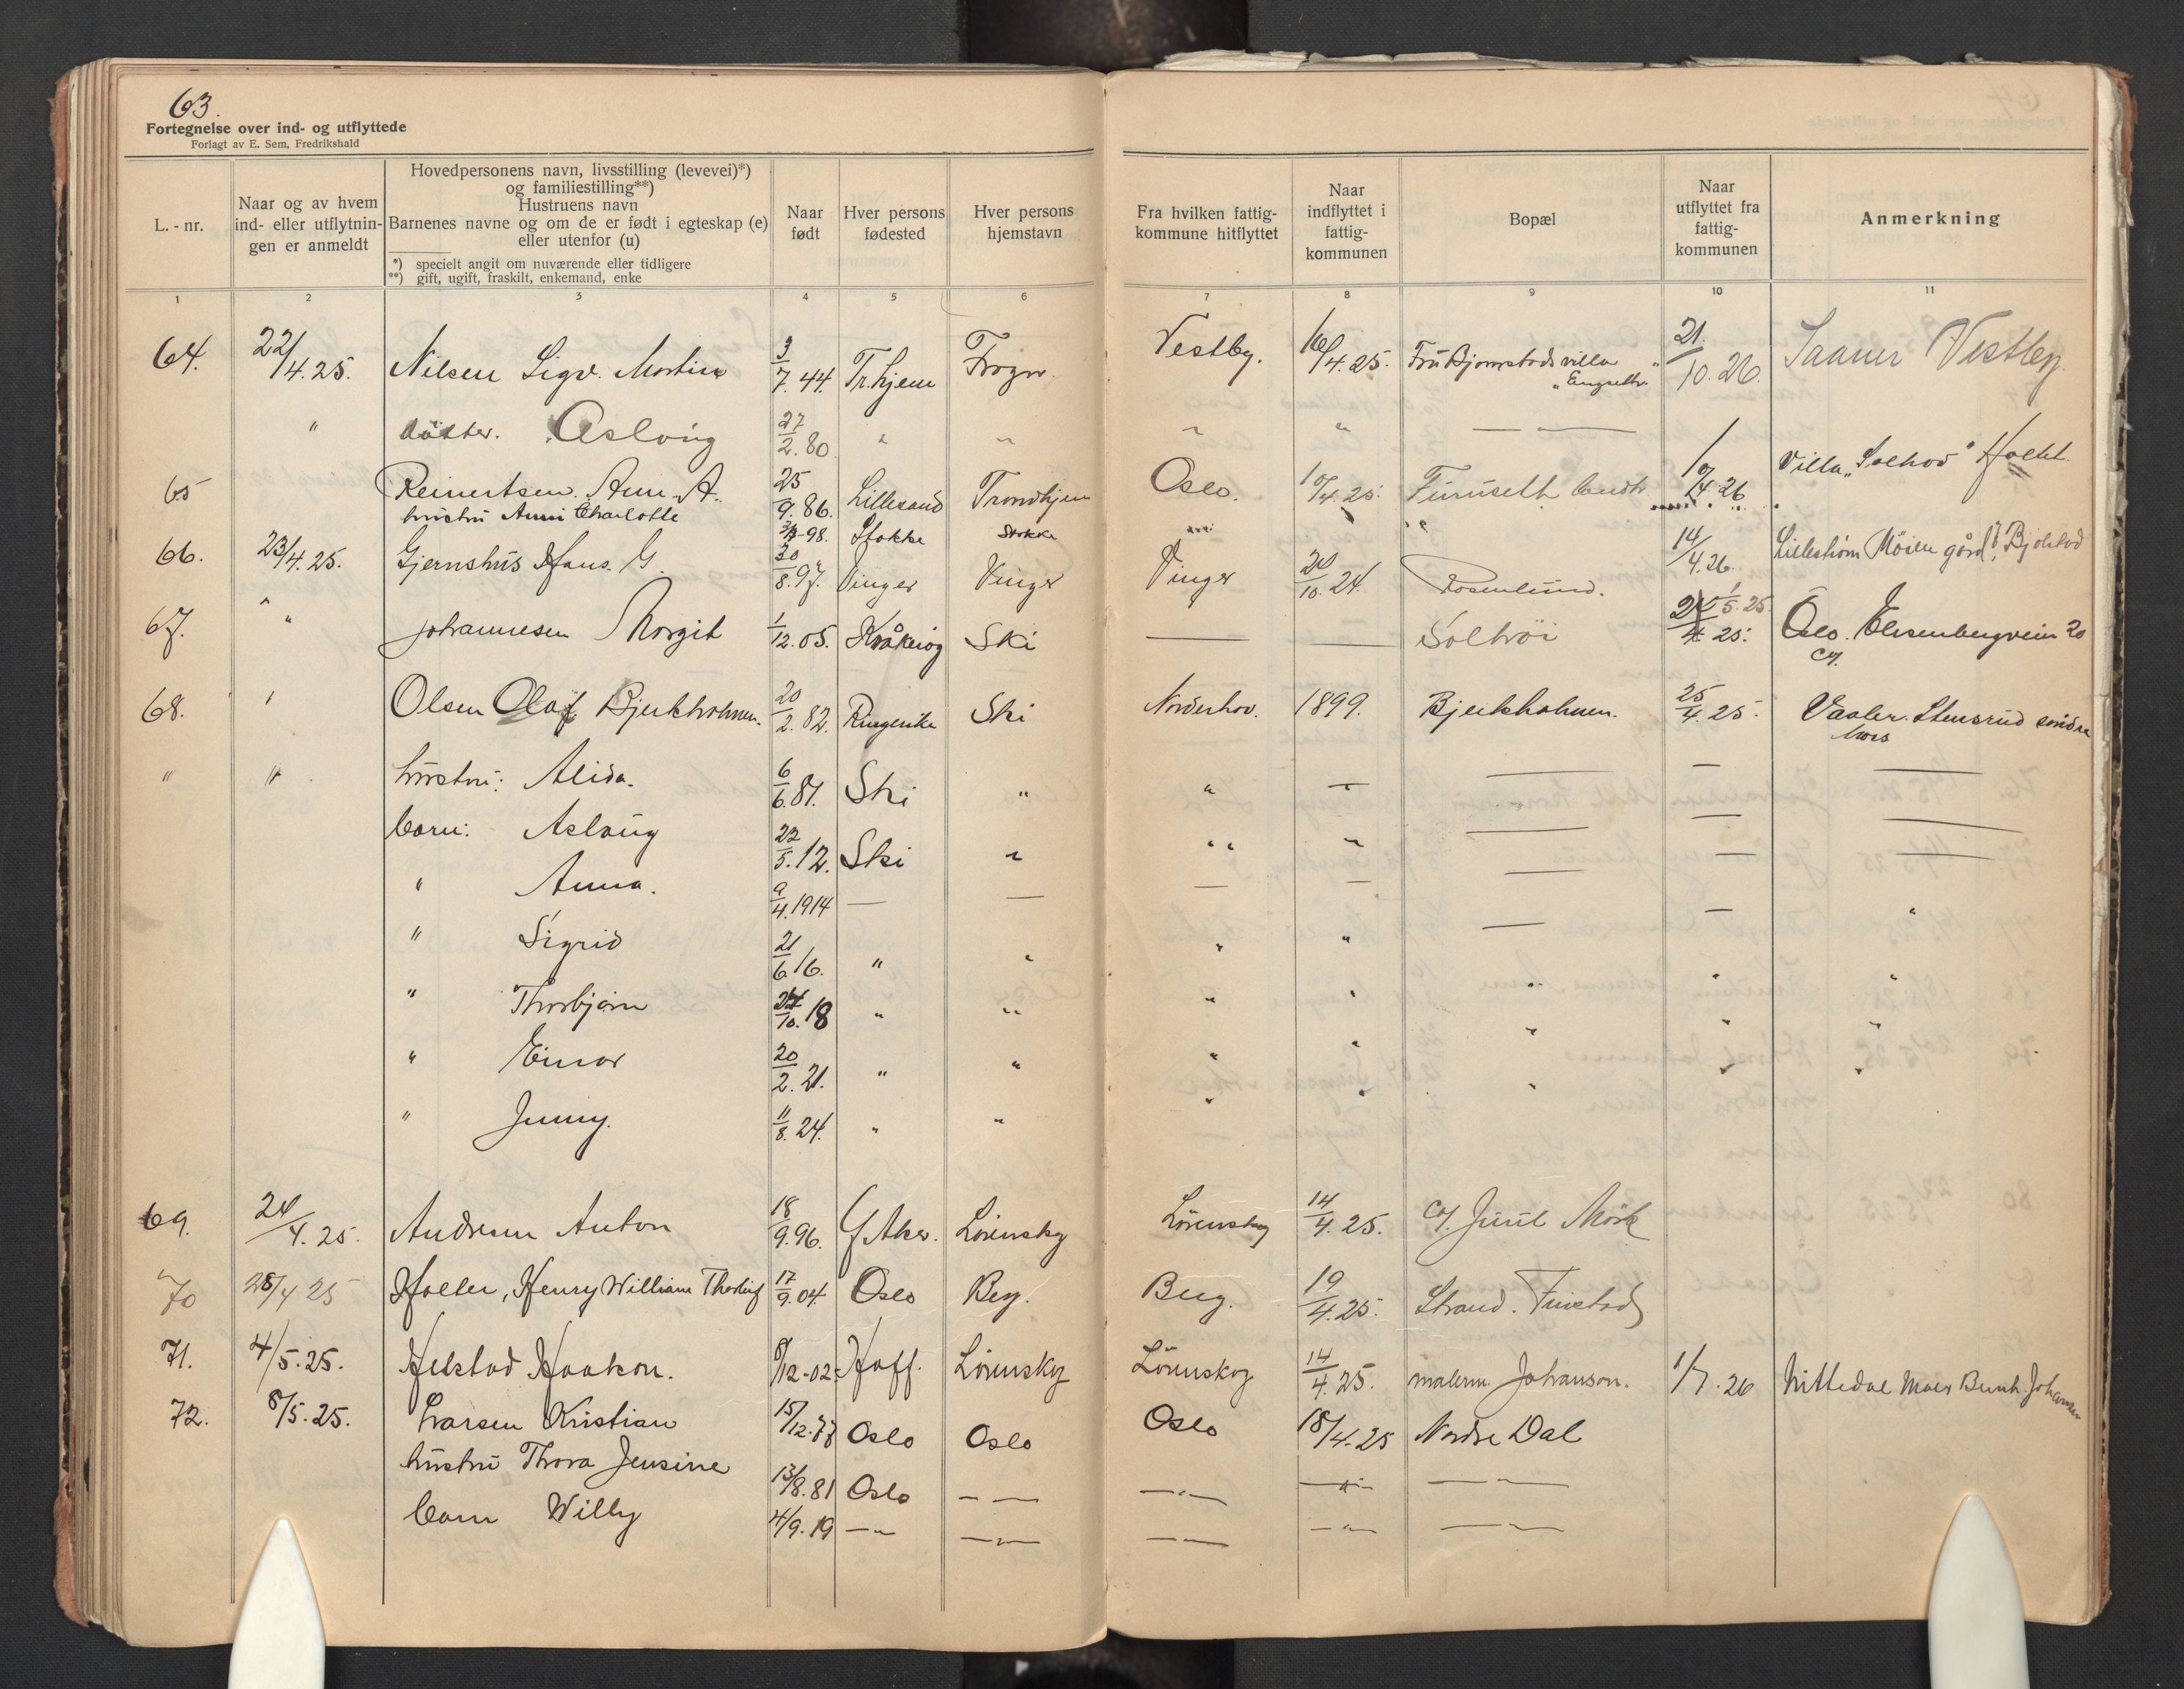 63.
Fortegnelse over ind- og utflyttede
Forlagt av E. Sem, Fredrikshald
L.-nr.
Naar og av hvem ind- eller utflytnin-gen er anmeldt
Hovedpersonens navn, livsstilling (levevei)*)
og familiestilling**)
Hustruens navn
Barnenes navne og om de er født i egteskap (e)
eller utenfor (u)
*) specielt angit om nuværende eller tidligere
**) gift, ugift, fraskilt, enkemand, enke
Naar født
Hver persons fødested
Hver persons hjemstavn
Fra hvilken fattig-kommune hitflyttet
Naar indflyttet i fattig-kommunen
Bopæl
Naar utflyttet fra fattig-kommunen
Anmerkning
1 2 3 4 5 6 7 8 9 10 11
64. 22/4.25. Nilsen Sigv. Martin 3/7.44. Tr.hjem Frogn. Vestby. 16/4.25. Fru villa "Engseth" 21/10.26. Saaner Vestby
" datter. Aslaug 27/2.80 " " " " — " —
65 Reinertsen. Arne. A. 25/9.86. Lillesand Trondhjem Oslo. 10/4.25. Furuseth landh. 10/4.26 Villa "Solhov" Holst.
hustru Anni Charlotte 98. Stokke Stokke " "
66. 23/4.25. Gjernshus Hans. G. 20/8.97. Vinger Vinger Vinger 20/10.24. Rosenlund. 14/4.26. Lillestrøm Møien gård
67. " Johannesen Margit 1/12.05. Kråkerøg Ski — — Soltrøi 1/5.25. 25/4.25. Oslo. Elisenbergveien 20
68. " Olsen Olaf Bjerkholmen. 20/2.82. Ringerike Ski Norderhov. 1899. Bjerkholmen. 25/4.25. Vaaler. Stensrud søndre
Moss
" " hustru: Alida. 6/6.81. Ski " " — — — —
barn: Aslaug 22/5.12. Ski " " " — — —
" Anna. 9/4.1914 — — — — — — —
" Sigrid 21/6.16. " " " " — — "
" Thorbjørn 24/10.18 " " " " " " "
" Einar 20/2.21. " " " " " " "
" Jenny. 11/8.24. " " " " " " "
69. 24/4.25. Andresen Anton 18/9.96. Ø Aker. Lørenskog Lørenskog 14/4.25. c/. Juul Mørk
70 28/4 25 Holter, Henry William Thorleif 17/9.04. Oslo Berg. Berg. 19/4.25. Strand. Finstad
71. 4/5.25. Helstad Haakon. 8/12-02. Hoff. Lørenskog Lørenskog 14/4.25. malerm. Johanson. 1/7.26 Nittedal Maler Bernh. Johansen
72. 8/5.25. Larsen Kristian 15/12.77 Oslo Oslo Oslo 18/4.25 Nordre Dal
hustru Thora Jensine 13/8.81 Oslo — — —"— —"— —"—
barn Willy 4/9.19 —"— —"— —"— —"— —"—